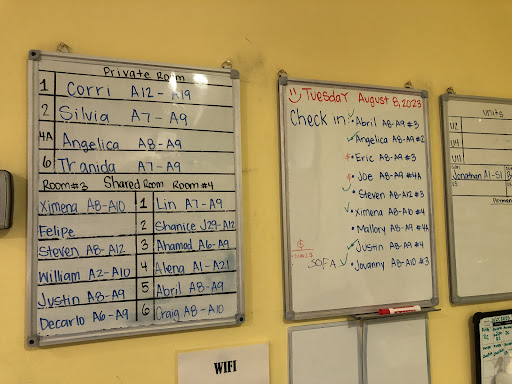 Private Room
1 Corri A12 - A19
2 Silvia A7 - A9
4A Angelica A8 - A9
6 Tranida A7 - A9
Room#3 Shared Room Room #4
Ximena A8-A10 1 Lin A7 - A9
Felipe 2 Shanice J29-A12
Steven A8-A12 3 Ahamad A6-A9
William A2-A10 4 Alena A1-A21
Justin A8-A9 5 Abril A8-A9
Decarlo A6-A9 6 Craig A8-A10
Tuesday August 8, 2023
Check in:
Abril A8-A9 #3
Angelica A8-A9 #2
$ Eric A8-A9 #3
$ Joe A8-A9 #4A
Steven A8-A12 #3
Ximena A8-A10 #4
Mallory A8-A9 #4A
Justin A8-A9 #4
SOFA Jovanny A8-A10 #3
units
U2
U4
U11
Jonathan A1-S1
WIFI